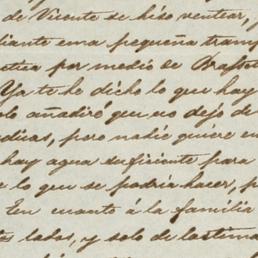 de Vicente se hiso ventear,
diante una pequeña tramp
por medio de
Ya te he dicho lo que hay
añadiré que no dejo de
dicas, pero nadie quiere en
hay agua suficiente para
e lo que se podria hacer, p
En cuanto á la familia
tes lados, y solo de lastima